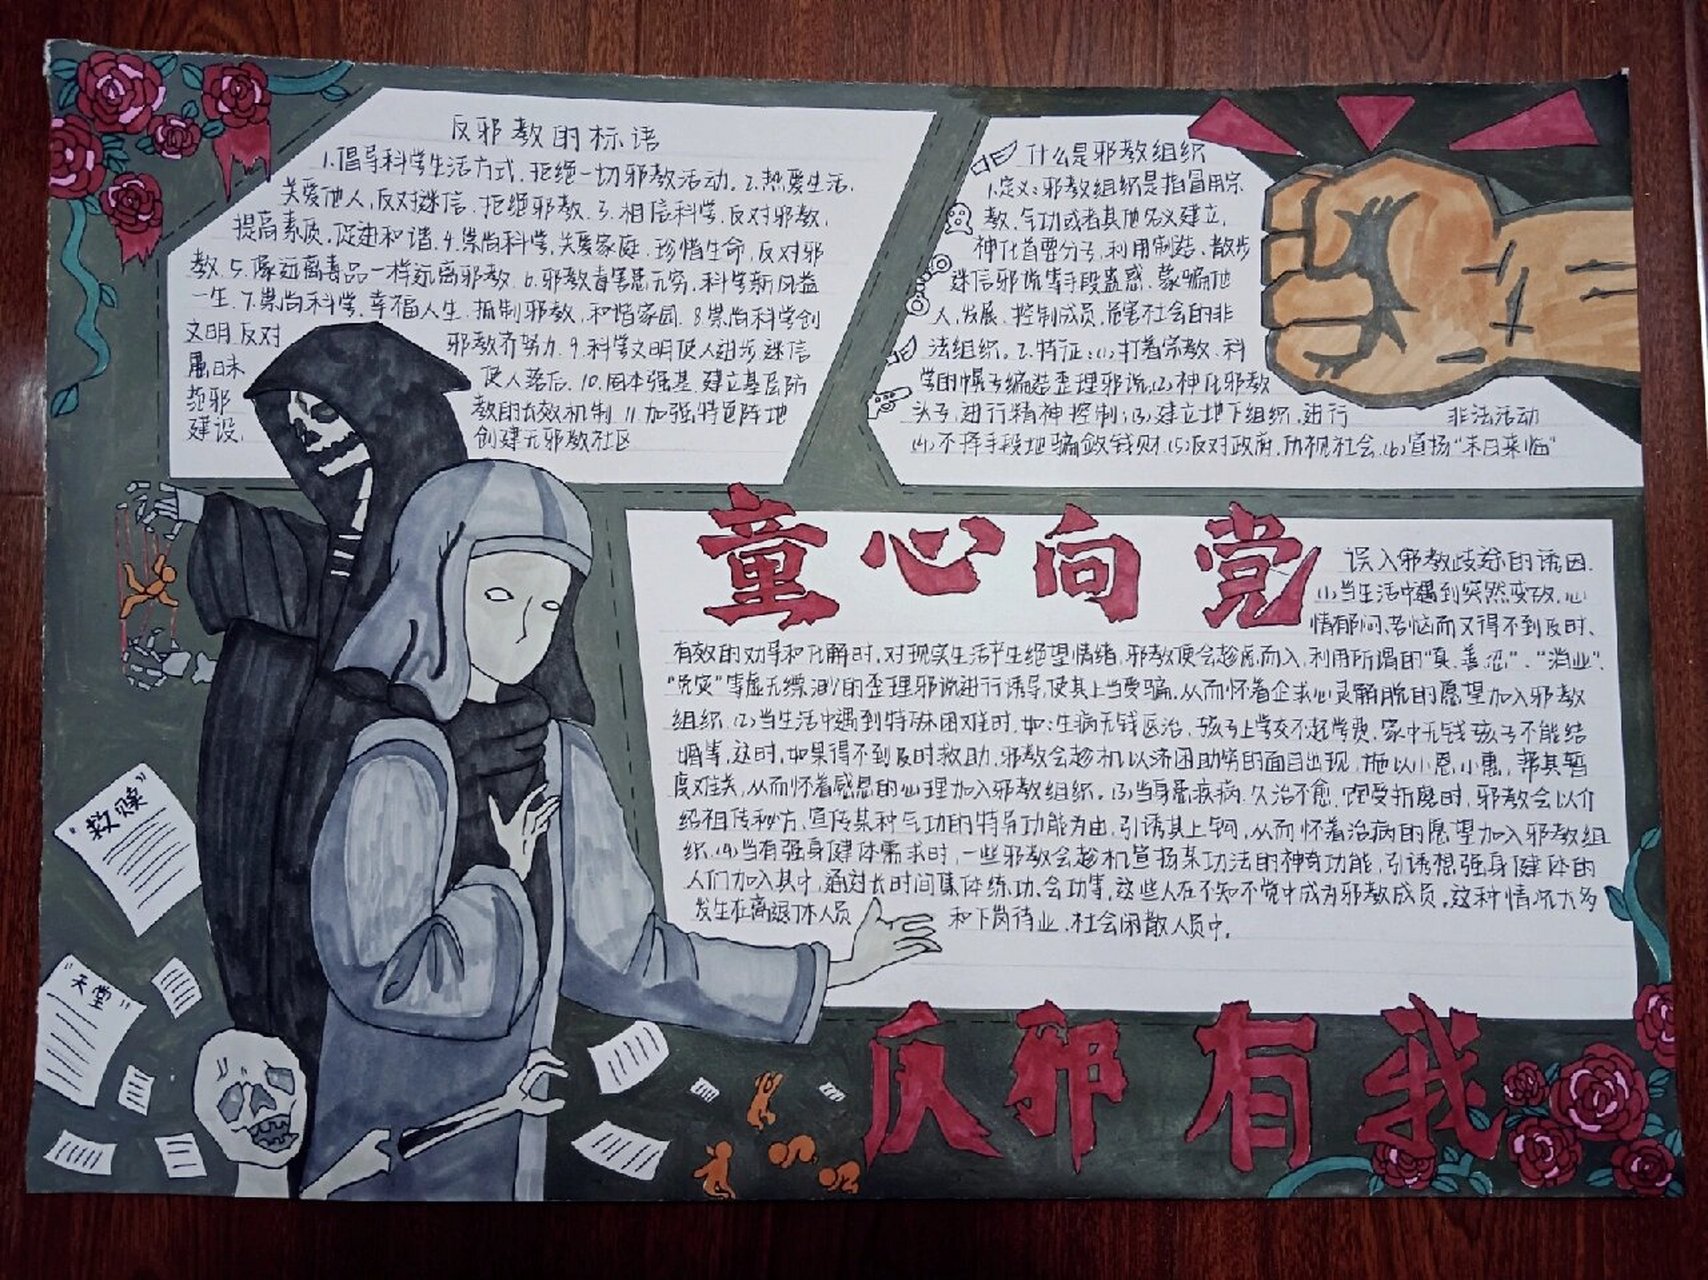 反邪教的标语
1.倡导科学生活方式,拒绝一切邪教活动.2.热爱生活,
关爱他人,反对迷信,拒绝邪教.3.相信科学,反对邪教,
提高素质,促进和谐.4.崇尚科学,关爱家庭,珍惜生命,反对邪
教.5.像远离毒品一样远离邪教.6.邪教毒害患无穷,科学新风益
一生.7.崇尚科学,幸福人生,抵制邪教,和谐家园.8.崇尚科学创
文明,反对邪教齐努力.9.科学文明使人进步,迷信
愚昧使人落后.10.固本强基,建立基层防
范邪教的长效机制.11.加强特色阵地
建设,创建无邪教社区
什么是邪教组织
1.定义:邪教组织是指冒用宗
教、气功或者其他名义建立,
神化首要分子,利用制造、散步
迷信邪说等手段蛊惑、蒙骗他
人,发展、控制成员,危害社会的非
法组织.2.特征:(1)打着宗教、科
学的幌子编造歪理邪说;(2)神化邪教
头子,进行精神控制;(3)建立地下组织,进行非法活动
(4)不择手段地骗敛钱财.(5)反对政府,仇视社会.(6)宣扬“末日来临”
童心向党
误入邪教歧途的诱因.
(1)当生活中遇到突然变故,心
情郁闷、苦恼而又得不到及时、
有效的劝导和化解时,对现实生活产生绝望情绪,邪教便会趁虚而入,利用所谓的“真、善、忍”、“消业”、
“免灾”等虚无缥渺的歪理邪说进行诱导,使其上当受骗,从而怀着企求心灵解脱的愿望加入邪教
组织.(2)当生活中遇到特殊困难时,如:生病无钱医治、孩子上学交不起学费、家中无钱孩子不能结
婚等,这时,如果得不到及时救助,邪教会趁机以济困助穷的面目出现,施以小恩小惠,帮其暂
度难关,从而怀着感恩的心理加入邪教组织.(3)当身患疾病,久治不愈,饱受折磨时,邪教会以介
绍祖传秘方、宣传某种气功的特异功能为由,引诱其上钩,从而怀着治病的愿望加入邪教组
织.(4)当有强身健体需求时,一些邪教会趁机宣扬某功法的神奇功能,引诱想强身健体的
人们加入其中,通过长时间集体练功、会功等,这些人在不知不觉中成为邪教成员,这种情况大多
发生在离退休人员和下岗待业、社会闲散人员中.
“救赎”
“天堂”
反邪有我